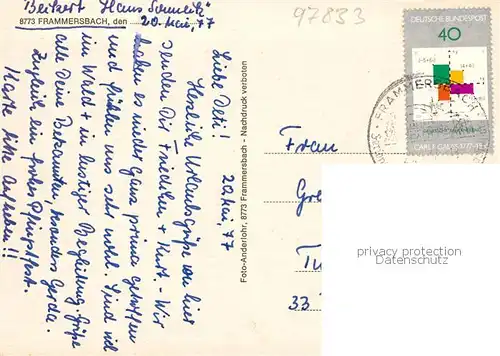 Beikert "Haus Schmelz"
8773 FRAMMERSBACH, den 20. Mai, 77
20 Mai, 77
Liebe Deti!
Herzliche Urlaubsgrüße von hier
senden Dir Friedchen + Kurt. Wir
haben es wieder ganz prima getroffen
und fühlen uns sehr wohl. Sind viel
im Wald + in lustiger Begleitung. Grüße
alle Deine Bekannten, besonders Gerda.
Zugleich ein frohes Pfingstfest.
Karte bitte aufheben!!
Foto-Anderlohr, 8773 Frammersbach - Nachdruck verboten
97833
DEUTSCHE BUNDESPOST
40
CARL F. GAUSS 1777-1855
FRAMMERSBACH
Frau
Gre
33
privacy protection
Datenschutz